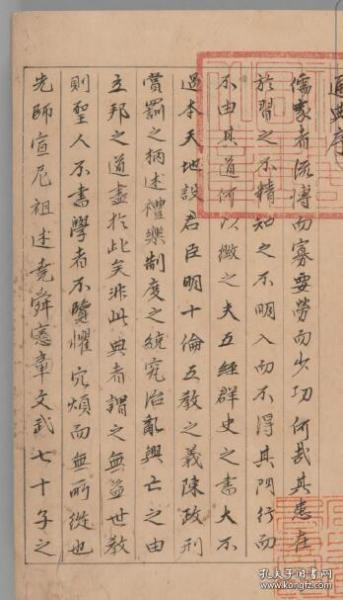 通典序
儒家者流博而寡要勞而少功何哉其患在
於習之不精知之不明入而不得其門行而
不由其道何以徵之夫五經群史之書大不
過本天地設君臣明十倫五教之義陳政刑
賞罰之柄述禮樂制度之統究治亂興亡之由
立邦之道盡於此矣非此典者謂之無益世教
則聖人不書學者不覽懼冗煩而無所從也
先師宣尼祖述堯舜憲章文武七十子之
孔夫子旧书网